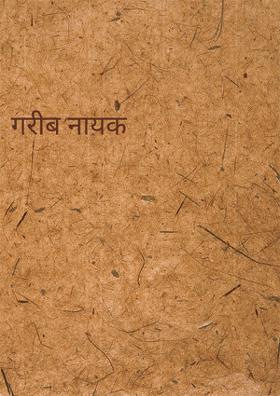 गरीब नायक